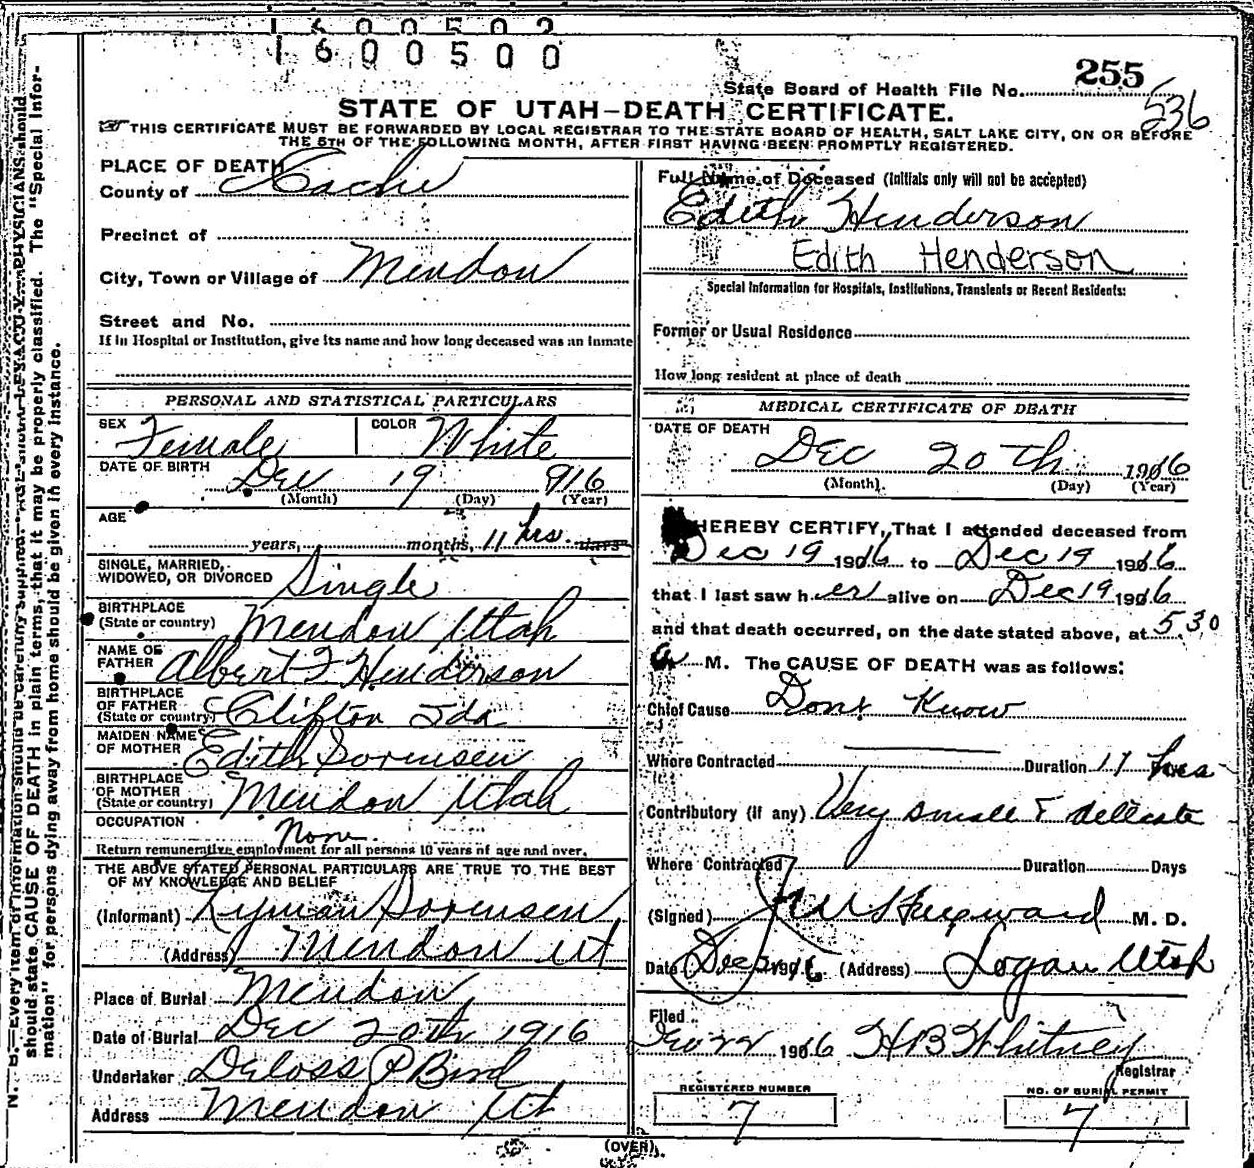 1600502
1600500
255
State Board of Health File No.
536
STATE OF UTAH—DEATH CERTIFICATE.
THIS CERTIFICATE MUST BE FORWARDED BY LOCAL REGISTRAR TO THE STATE BOARD OF HEALTH, SALT LAKE CITY, ON OR BEFORE
THE 5TH OF THE FOLLOWING MONTH, AFTER FIRST HAVING BEEN PROMPTLY REGISTERED.
PLACE OF DEATH
County of Cache
Precinct of
City, Town or Village of Mendon
Street and No.
If in Hospital or Institution, give its name and how long deceased was an inmate
PERSONAL AND STATISTICAL PARTICULARS
SEX Female COLOR White
DATE OF BIRTH Dec 19 916
(Month) (Day) (Year)
AGE
years, months, 11 hrs. days
SINGLE, MARRIED,
WIDOWED, OR DIVORCED Single
BIRTHPLACE
(State or country) Mendon Utah
NAME OF
FATHER Albert F Henderson
BIRTHPLACE
OF FATHER
(State or country) Clifton Ida
MAIDEN NAME
OF MOTHER Edith Sorensen
BIRTHPLACE
OF MOTHER
(State or country) Mendon Utah
OCCUPATION None
Return remunerative employment for all persons 10 years of age and over.
THE ABOVE STATED PERSONAL PARTICULARS ARE TRUE TO THE BEST
OF MY KNOWLEDGE AND BELIEF
(Informant) Lyman Sorensen
(Address) Mendon Ut
Place of Burial Mendon
Date of Burial Dec 20th 1916
Undertaker Deloss P Bird
Address Mendon Ut
Full Name of Deceased (Initials only will not be accepted)
Edith Henderson
Edith Henderson
Special Information for Hospitals, Institutions, Transients or Recent Residents:
Former or Usual Residence
How long resident at place of death
MEDICAL CERTIFICATE OF DEATH
DATE OF DEATH
Dec 20th 1916
(Month) (Day) (Year)
HEREBY CERTIFY, That I attended deceased from
Dec 19 1916 to Dec 19 1916
that I last saw her alive on Dec 19 1916
and that death occurred, on the date stated above, at 5.30
a M. The CAUSE OF DEATH was as follows:
Chief Cause Dont Know
Where Contracted Duration 11 hrs
Contributory (if any) Very small & delicate
Where Contracted Duration Days
(Signed) M. D.
Date Dec 1916 (Address) Logan Utah
Filed
22 1916 H B Whitney
Registrar
REGISTERED NUMBER
7
NO. OF BURIAL PERMIT
7
(OVER)
N. B.—Every item of information should be carefully supplied. AGE should be stated EXACTLY. PHYSICIANS should
should state CAUSE OF DEATH in plain terms, that it may be properly classified. The "Special Infor-
mation" for persons dying away from home should be given in every instance.